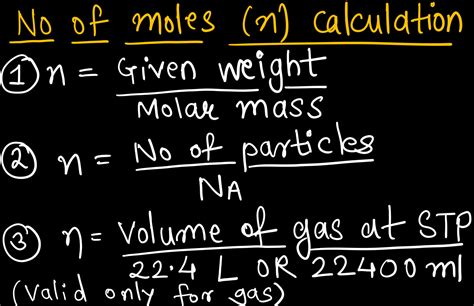 No of moles (n) calculation
① n = Given weight
Molar mass
② n = No of particles
NA
③ n = Volume of gas at STP
22.4 L OR 22400 ml
(Valid only for gas)